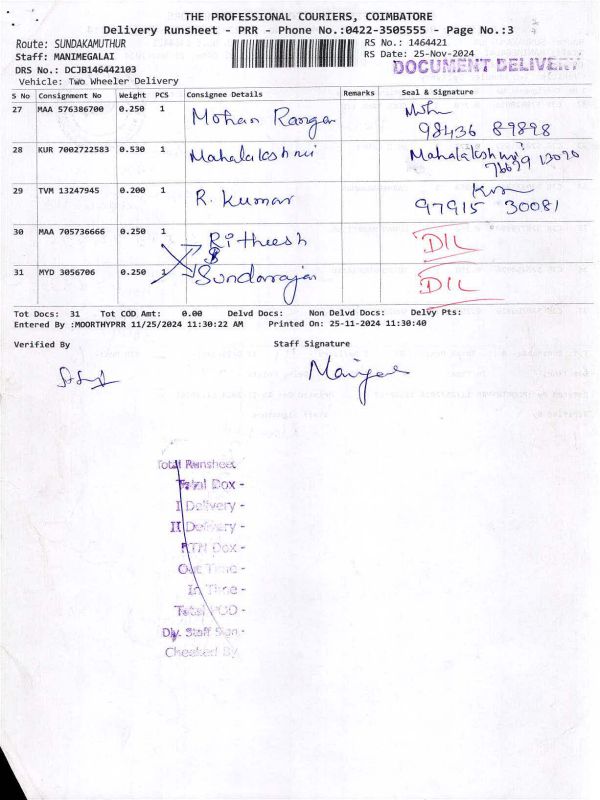 THE PROFESSIONAL COURIERS, COIMBATORE
Delivery Runsheet - PRR - Phone No.:0422-3505555 - Page No.:3
Route: SUNDAKAMUTHUR
RS No.: 1464421
Staff: MANIMEGALAI
RS Date: 25-Nov-2024
DRS No.: DCJB146442103
DOCUMENT DELIVERY
Vehicle: Two Wheeler Delivery
S No Consignment No Weight PCS Consignee Details Remarks Seal & Signature
27 MAA 576386700 0.250 1 Mohan Rangan
98436 89898
28 KUR 7002722583 0.530 1 Mahalalakshmi Mahalalakshmi
13020
29 TVM 13247945 0.200 1 R. Kumar
97915 30081
30 MAA 705736666 0.250 1 Ritheesh D/L
31 MYD 3056706 0.250 1 Sundarrajan D/L
Tot Docs: 31 Tot COD Amt: 0.00 Delvd Docs: Non Delvd Docs: Delvy Pts:
Entered By :MOORTHYPRR 11/25/2024 11:30:22 AM Printed On: 25-11-2024 11:30:40
Verified By Staff Signature
Total Runsheet
Total Dox -
I Delivery -
II Delivery -
RTN Dox -
Out Time -
In Time -
Total POD -
Dly. Staff Sign -
Checked By